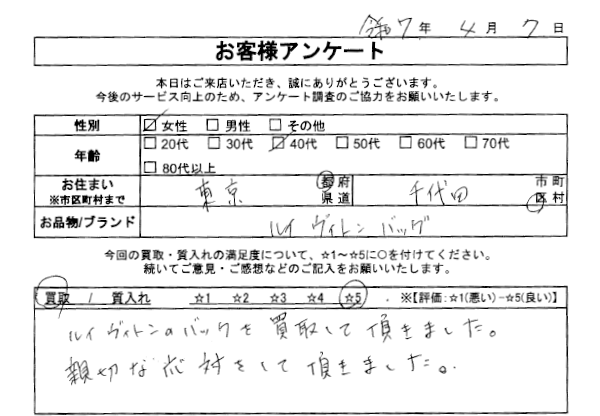 令和7年 4月 7日
お客様アンケート
本日はご来店いただき、誠にありがとうございます。
今後のサービス向上のため、アンケート調査のご協力をお願いいたします。
性別 ☑女性 □男性 □その他
年齢 □20代 □30代 ☑40代 □50代 □60代 □70代
□80代以上
お住まい ※市区町村まで 東京 都府県道 千代田 市町区村
お品物/ブランド ルイ ヴィトン バッグ
今回の買取・質入れの満足度について、☆1～☆5に○を付けてください。
続いてご意見・ご感想などのご記入をお願いいたします。
買取 / 質入れ ☆1 ☆2 ☆3 ☆4 ☆5 . ※【評価:☆1(悪い)-☆5(良い)】
ルイ ヴィトンのバックを買取して頂きました。
親切な応対をして頂きました。